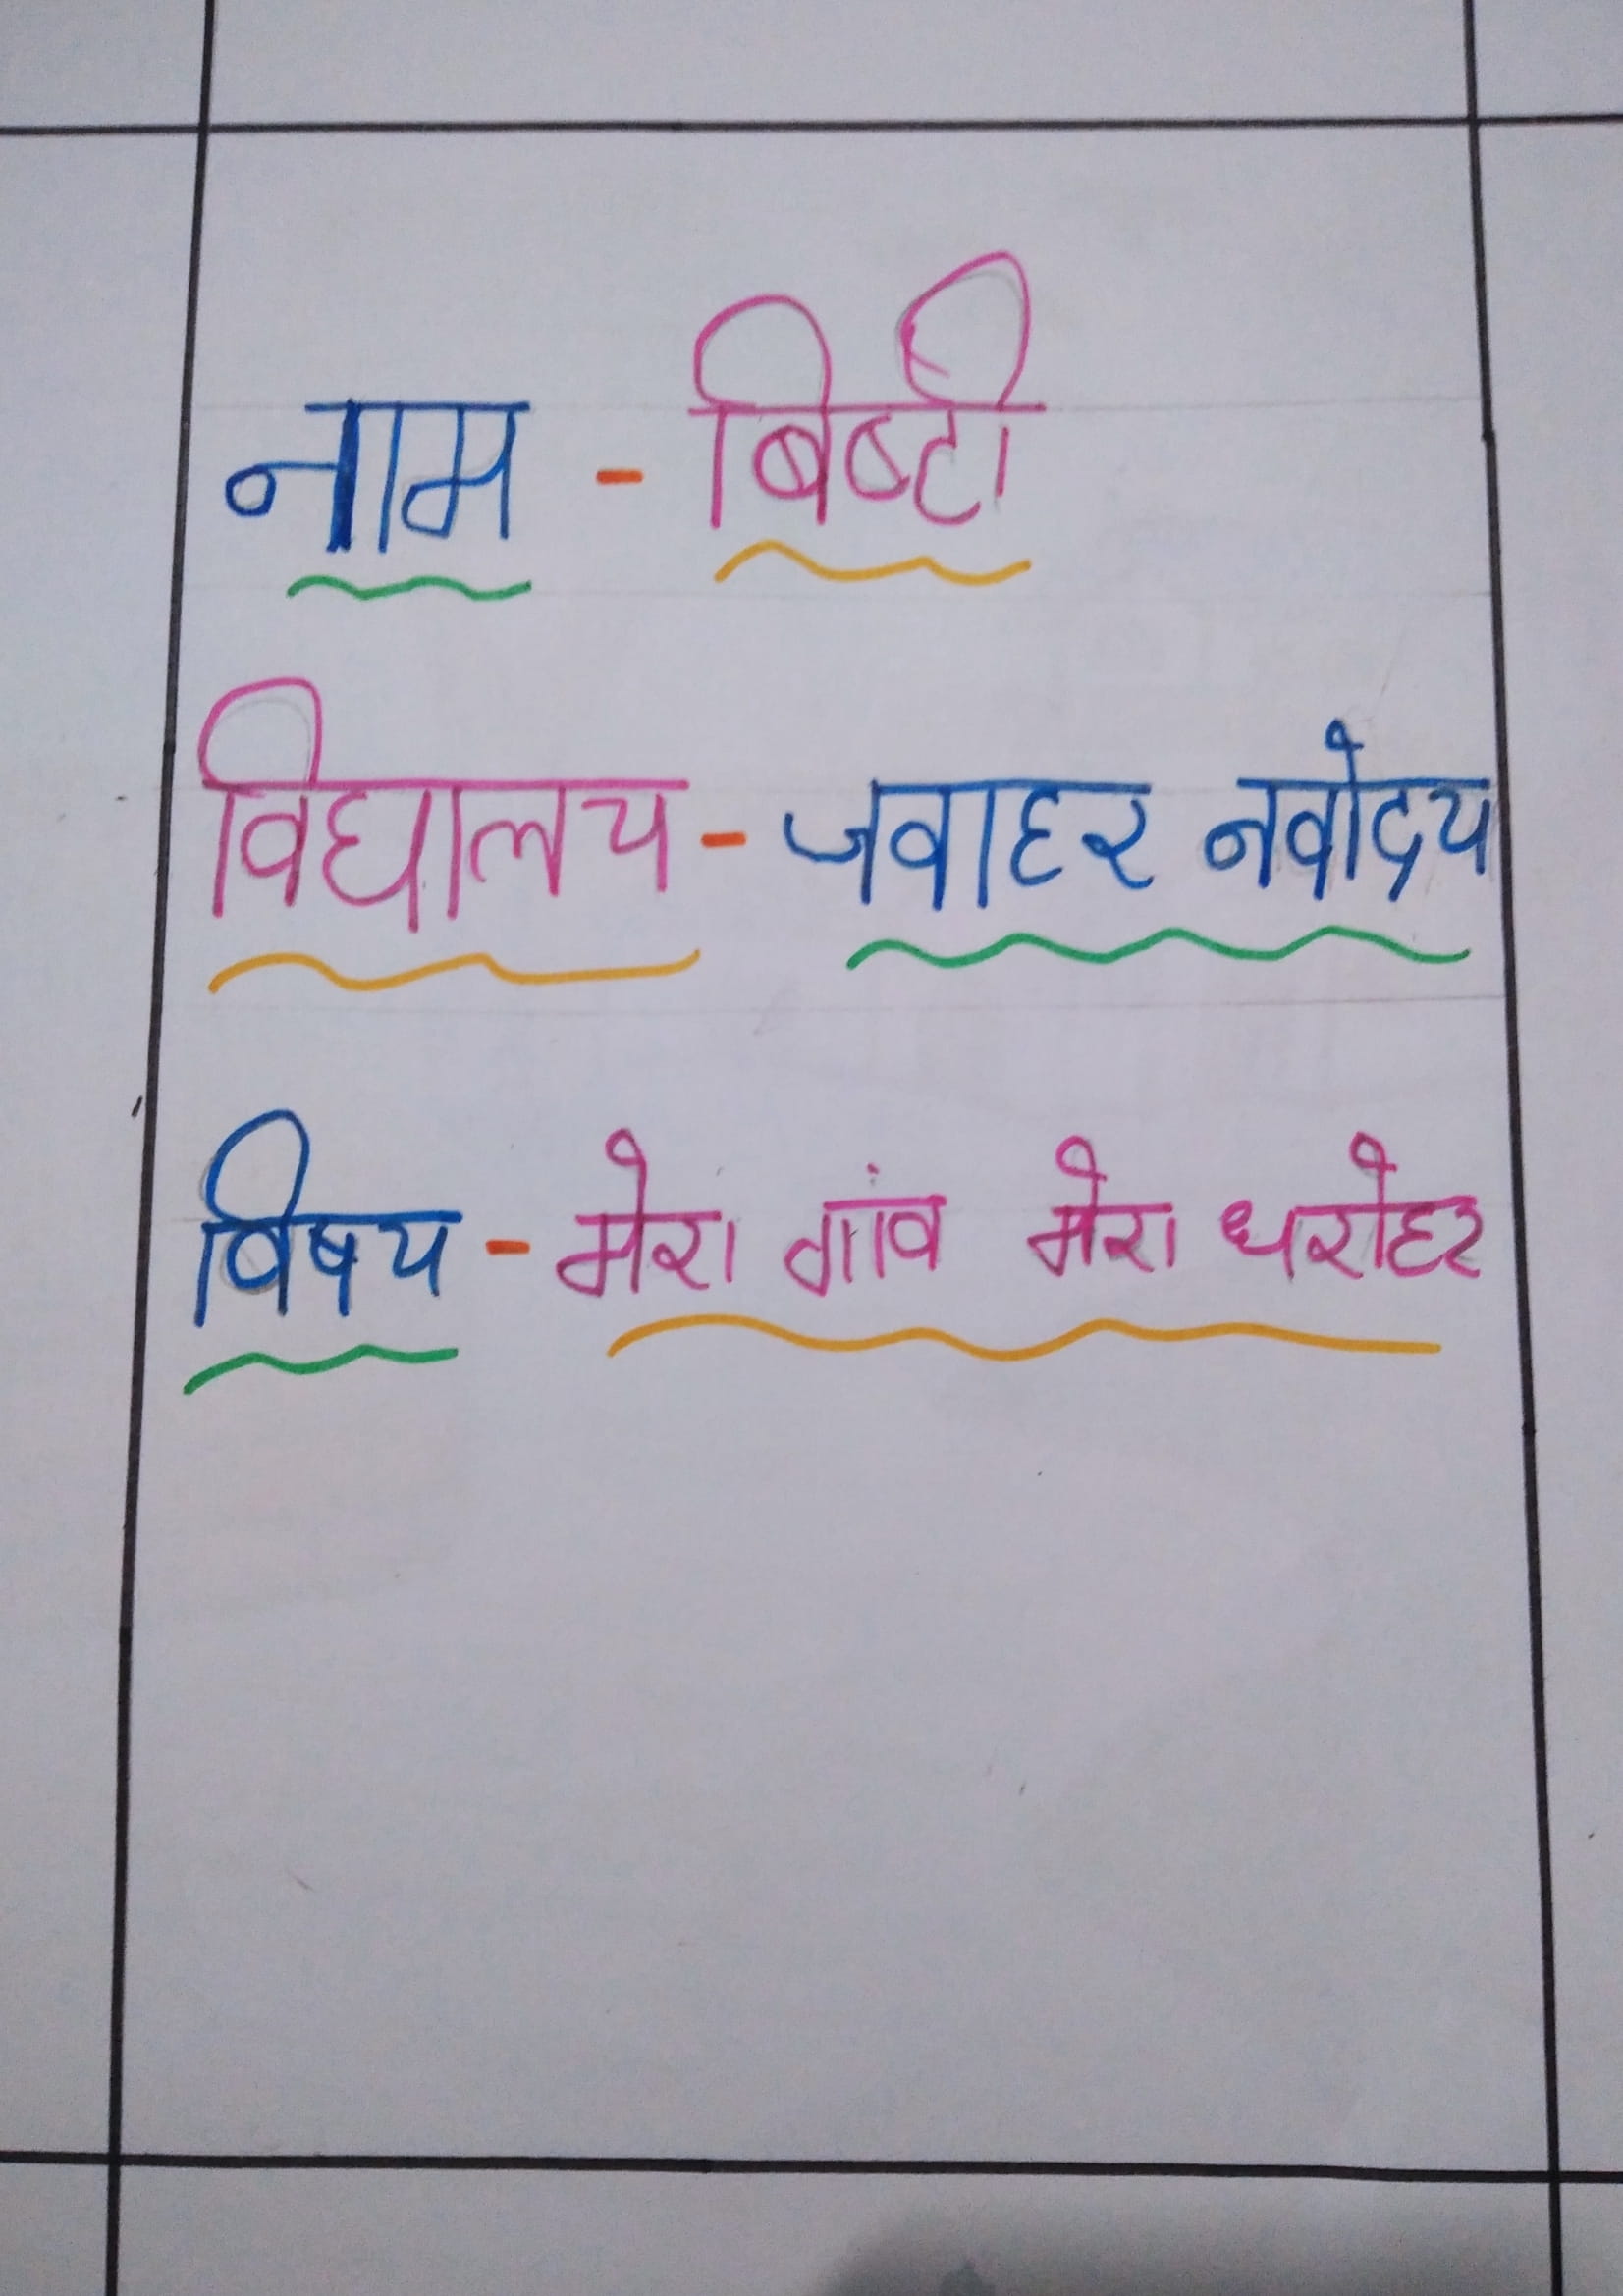 नाम - बिष्टी
विद्यालय - जवाहर नवोदय
विषय - मेरा गांव मेरा धरोहर